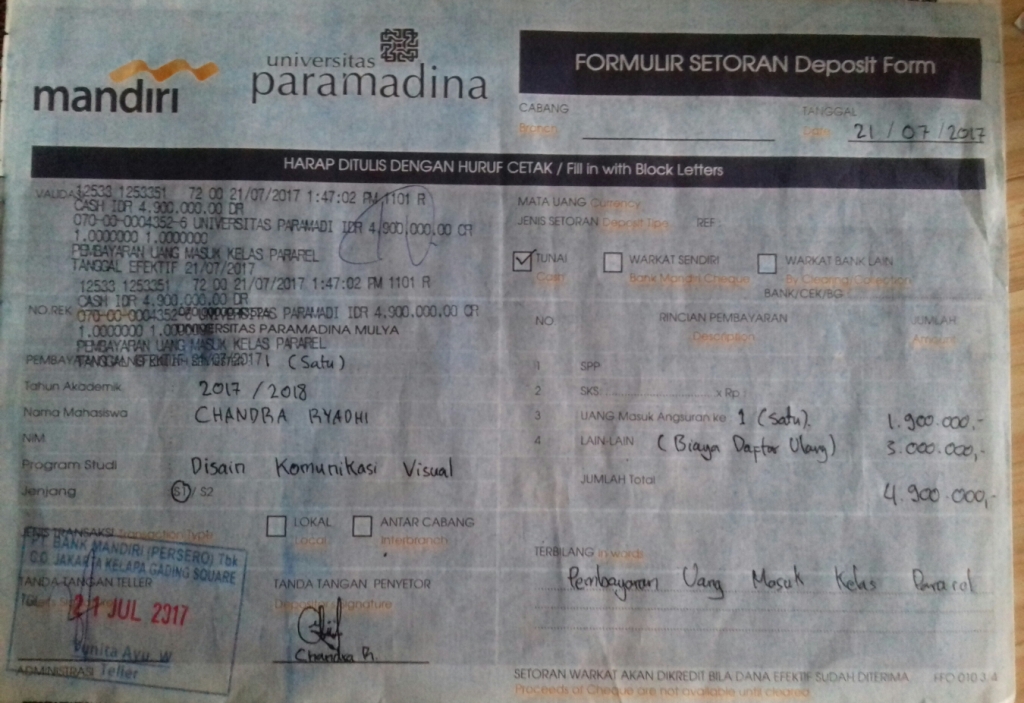 mandiri
universitas
paramadina
FORMULIR SETORAN Deposit Form
CABANG
Branch
TANGGAL
Date 21 / 07 / 2017
HARAP DITULIS DENGAN HURUF CETAK / Fill in with Block Letters
12533 1253351 72 00 21/07/2017 1:47:02 PM 1101 R
CASH IDR 4.900.000.00 DR
070-00-0004352-6 UNIVERSITAS PARAMADI IDR 4.900.000.00 CR
1.0000000 1.0000000
PEMBAYARAN UANG MASUK KELAS PARAREL
TANGGAL EFEKTIF 21/07/2017
12533 1253351 72 00 21/07/2017 1:47:02 PM 1101 R
CASH IDR 4.900.000.00 DR
NO.REK PARAMADI IDR 4.900.000.00 CR
1.0000000 UNIVERSITAS PARAMADINA MULYA
PEMBAYARAN UANG MASUK KELAS PARAREL
1 (Satu)
Tahun Akademik 2017 / 2018
Nama Mahasiswa CHANDRA RYADHI
NIM
Program Studi Disain Komunikasi Visual
Jenjang S1 / S2
JENIS TRANSAKSI Transaction Type
LOKAL
Local
ANTAR CABANG
Interbranch
PT BANK MANDIRI (PERSERO) Tbk
C.C. JAKARTA KELAPA GADING SQUARE
TANDA TANGAN TELLER
TGL.
21 JUL 2017
Yunita Ayu W
ADMINISTRASI Teller
TANDA TANGAN PENYETOR
Depositor Signature
Chandra R.
MATA UANG Currency
JENIS SETORAN Deposit Type REF
TUNAI
Cash
WARKAT SENDIRI
Bank Mandiri Cheque
WARKAT BANK LAIN
By Clearing Collection
BANK/CEK/BG
NO RINCIAN PEMBAYARAN JUMLAH
Description Amount
1 SPP
2 SKS x Rp
3 UANG Masuk Angsuran ke 1 (satu). 1.900.000,-
4 LAIN-LAIN (Biaya Daftar Ulang) 3.000.000,-
JUMLAH Total 4.900.000,-
TERBILANG in words
Pembayaran Uang Masuk Kelas Pararel
SETORAN WARKAT AKAN DIKREDIT BILA DANA EFEKTIF SUDAH DITERIMA FFO 010 3 4
Proceeds of Cheque are not available until cleared